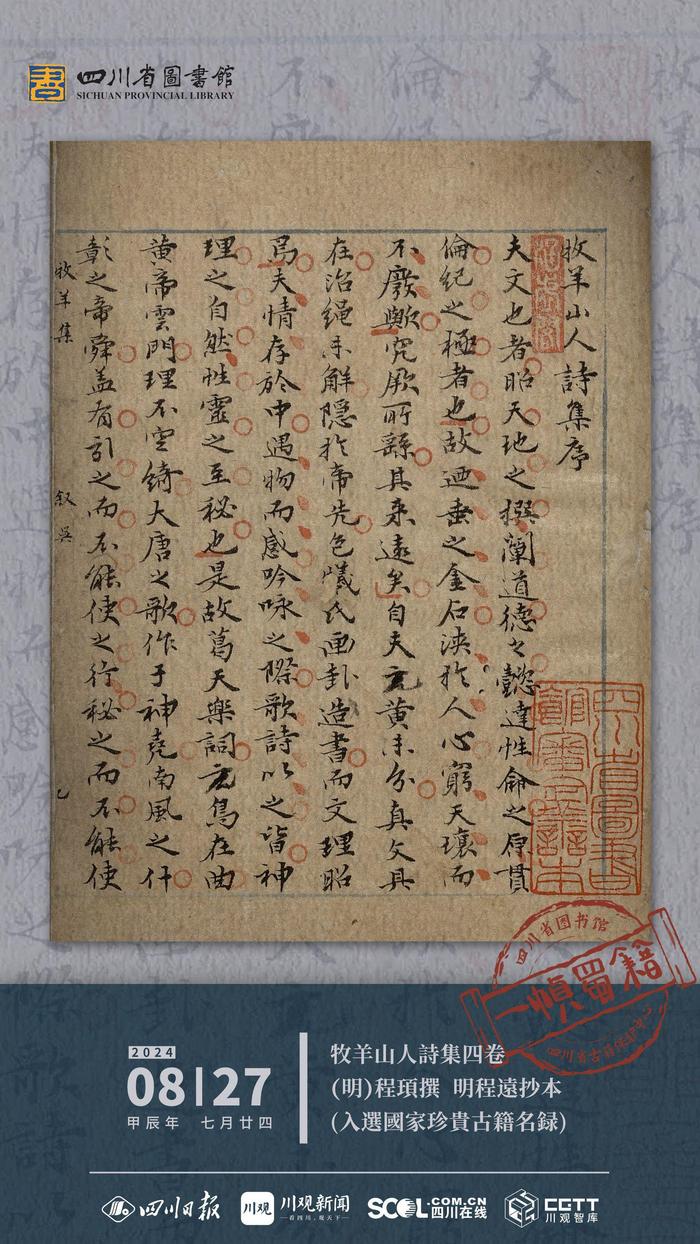 四川省圖書館
SICHUAN PROVINCIAL LIBRARY
牧羊山人詩集序
夫文也者昭天地之撰闡道德之懿達性命之原貫
倫紀之極者也故迺垂之金石浹於人心窮天壤而
不廢歟究厥所繇其来遠矣自夫玄黄未分真文具
在治繩未解隱於帝先包犧氏画卦造書而文理昭
焉夫情存於中遇物而感吟咏之際歌詩以之皆神
理之自然性靈之至秘也是故葛天樂詞玄鳥在曲
黄帝雲門理不空綺大唐之歌作于神堯南風之什
彰之帝舜盖有引之而不能使之行秘之而不能使
牧羊集
叙
乙
四川省圖書館審定善本
四川省图书馆
一幀蜀籍
四川省古籍保护中心
2024
08|27
甲辰年 七月廿四
牧羊山人詩集四卷
(明)程項撰 明程遠抄本
(入選國家珍貴古籍名録)
四川日报
川观
川观新闻
看四川,观天下
SCOL.COM.CN
四川在线
CGTT
川观智库